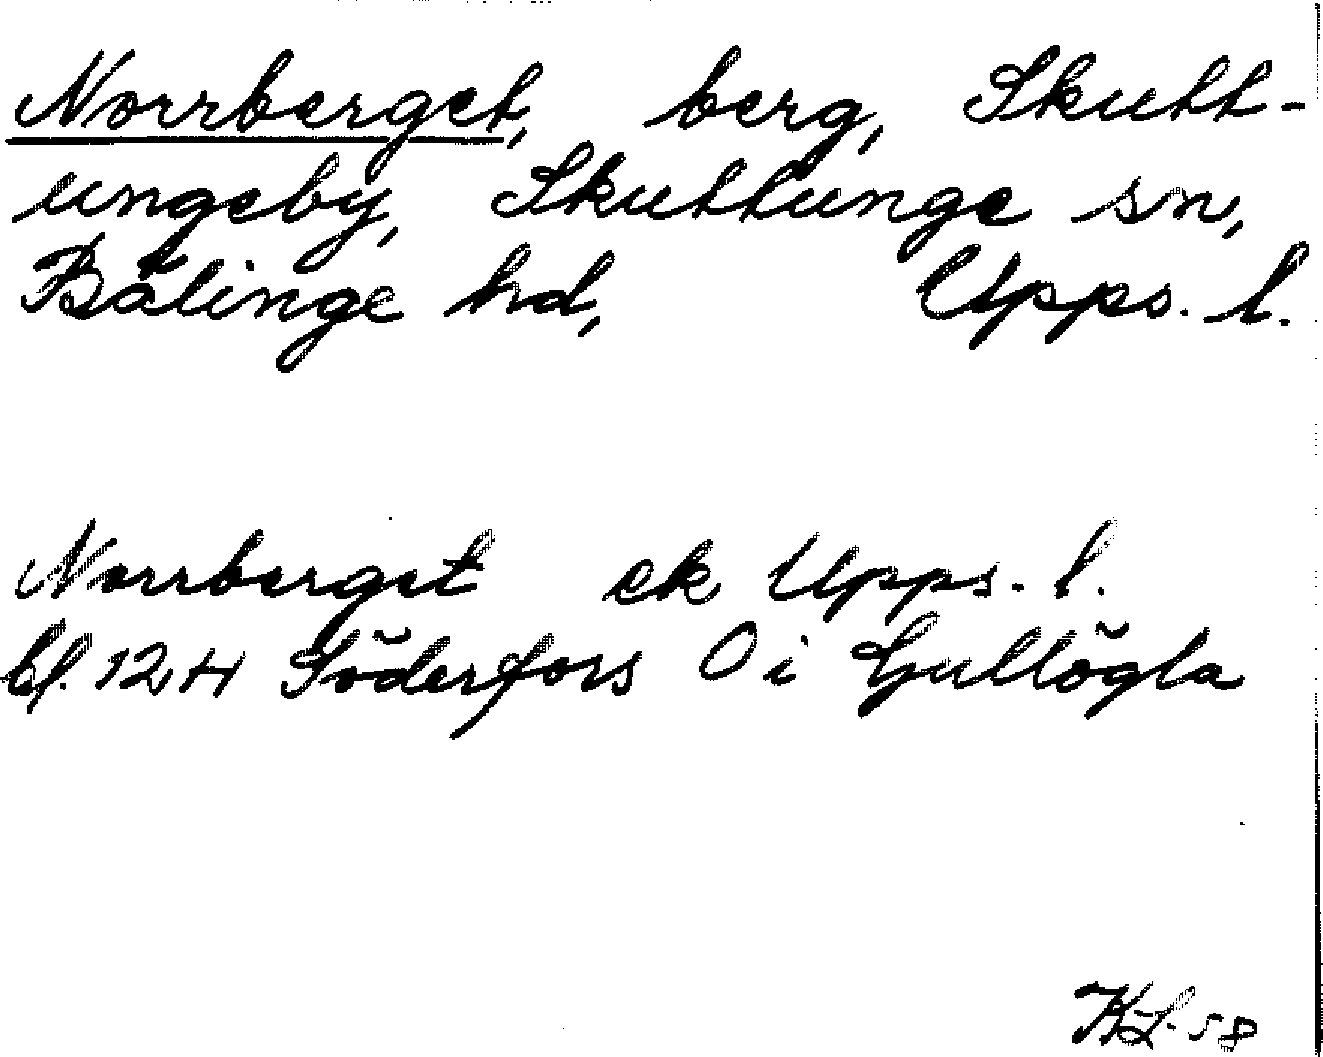 Norrberget, berg, Skutt-
ungeby, Skuttunge sn,
Bälinge hd, Upps. l.
Norrberget ek Upps. l.
bl. 12 H Söderfors O i Gullögla
KL-58